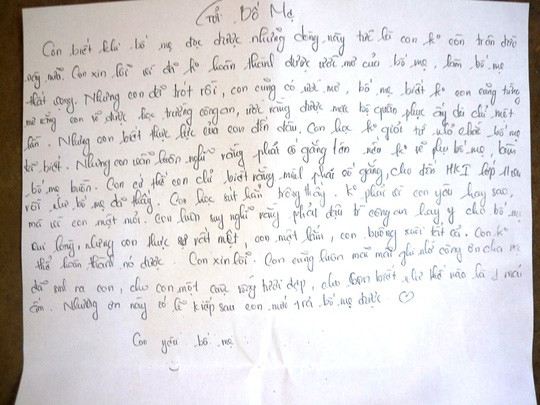 Gửi Bố Mẹ
Con biết khi bố mẹ đọc được những dòng này tức là con ko còn trên đời
này nữa. Con xin lỗi vì đã ko hoàn thành được ước mơ của bố mẹ, làm bố mẹ
thất vọng. Nhưng con đã trót rồi, con cũng có ước mơ, bố mẹ biết ko con cũng từng
mơ rằng con sẽ được học trường công an, ước rằng được mặc bộ quân phục ấy dù chỉ một
lần. Nhưng con biết thực lực của con đến đâu. Con học ko giỏi từ nhỏ chắc bố mẹ
đã biết. Nhưng con luôn luôn nghĩ rằng phải cố gắng lên nếu ko sẽ phụ bố mẹ, làm
bố mẹ buồn. Con cứ thế con chỉ biết rằng mình phải cố gắng, cho đến HKI lớp
rồi như bố mẹ đã thấy. Con học sút hẳn trông thấy. ko phải vì con yêu hay sao
mà vì con mệt mỏi. Con luôn suy nghĩ rằng phải đậu trường công an hay y cho bố mẹ
vui lòng, nhưng con thực sự rất mệt, con mệt lắm, con buông xuôi tất cả. Con ko
thể hoàn thành nó được. Con xin lỗi. Con cũng luôn mãi mãi ghi nhớ công ơn cha mẹ
đã sinh ra con, cho con một cuộc sống tươi đẹp, cho con biết như thế nào là 1 mái
ấm. Nhưng ơn này có lẽ kiếp sau con mới trả bố mẹ được. ♡
Con yêu bố mẹ